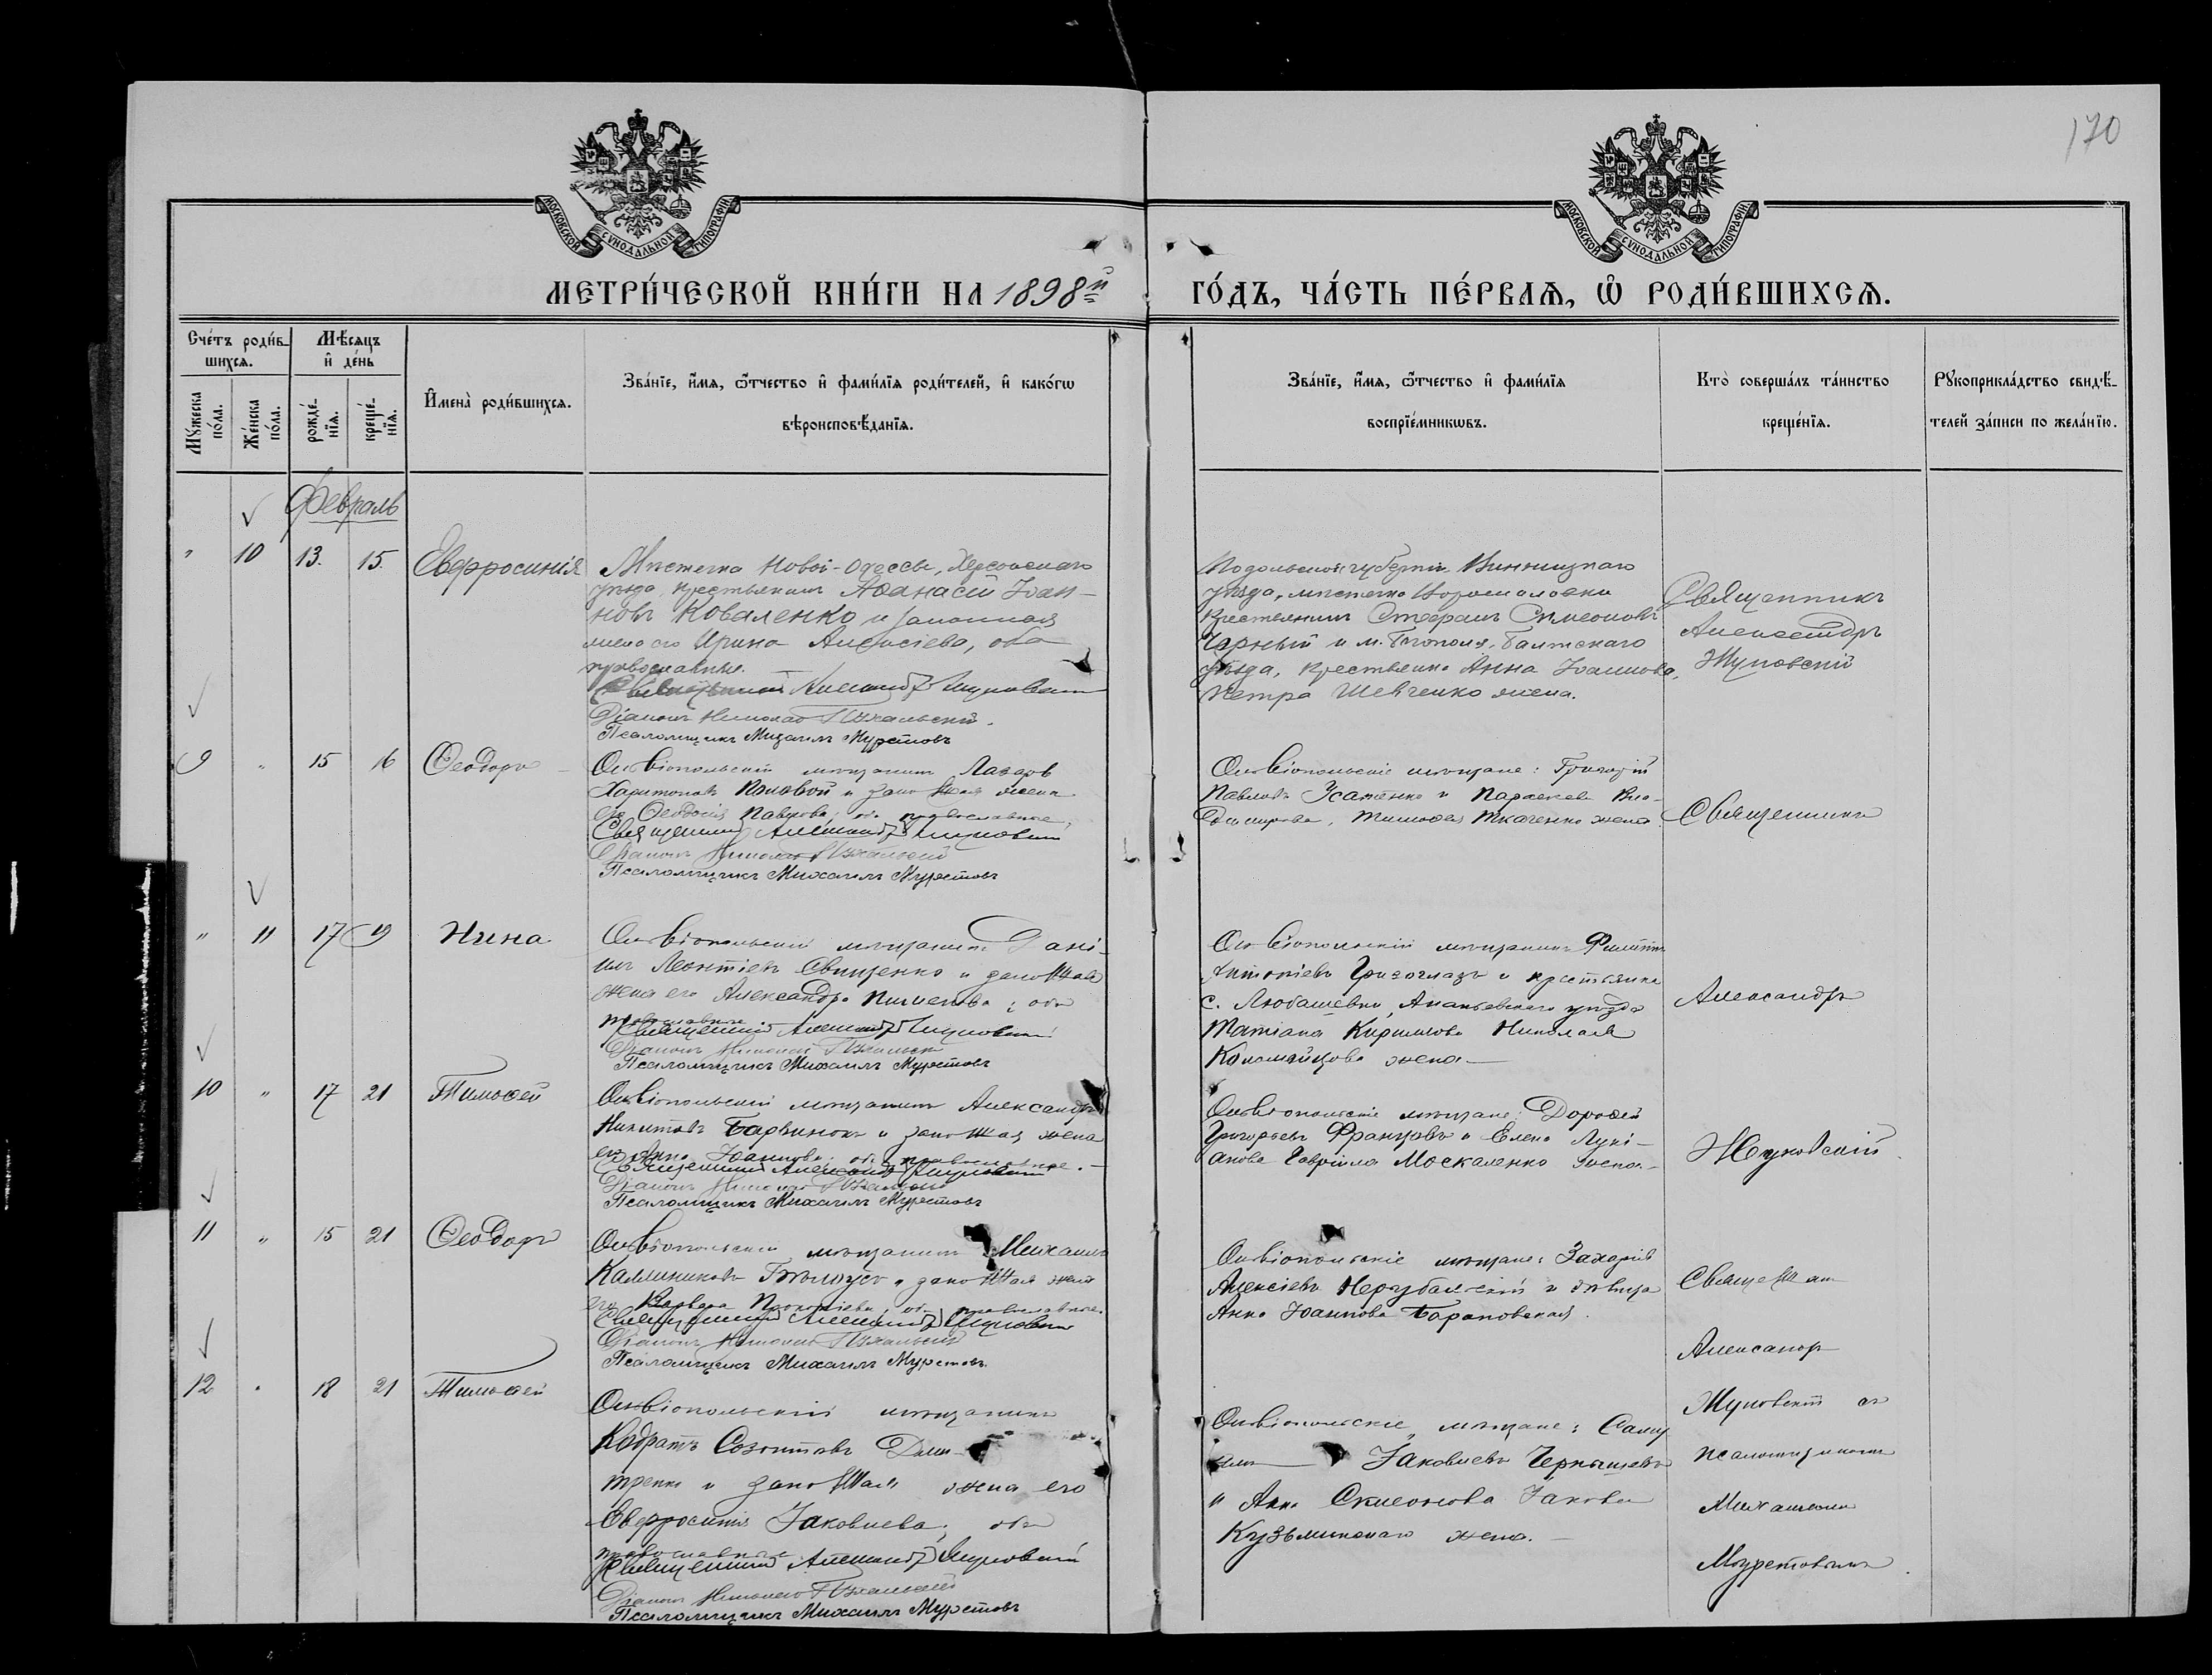 170
МОСКОВСКОЙ СѴНОДАЛЬНОЙ ТИПОГРАФІИ
МОСКОВСКОЙ СѴНОДАЛЬНОЙ ТИПОГРАФІИ
МЕТРИ́ЧЕСКОЙ КНИ́ГИ НА 1898й ГО́ДЪ, ЧА́СТЬ ПЕ́РВАѦ, Ѡ҆ РОДИ́ВШИХСѦ.
Сче́тъ роди́в-
шихсѧ.
Мꙋ́жеска
по́ла.
Же́нска
по́ла.
Мѣ́сѧцъ
и҆ де́нь
рожде́-
нїѧ.
креще́-
нїѧ.
И҆мена̀ роди́вшихсѧ.
Зва́нїе, и҆́мѧ, ѻ҆́тчество и҆ фами́лїѧ роди́телей, и҆ како́гѡ
вѣроисповѣ́данїѧ.
Зва́нїе, и҆́мѧ, ѻ҆́тчество и҆ фами́лїѧ
воспрїе́мникѡвъ.
Кто̀ соверша́лъ та́инство
креще́нїѧ.
Рꙋкоприкла́дство свидѣ́-
телей за́писи по жела́нїю.
Февраль
" 10 13. 15. Евфросинія
Мѣстечка Новой-Одессы, Херсонскаго
уѣзда, крестьянинъ Аѳанасій Іоан-
новъ Коваленко и законная
жена его Ирина Алексіева, оба
православные.
Священникъ Александръ Жуковскій
Діаконъ Николай
Псаломщикъ Михаилъ Муретовъ
Подольской губерніи Винницкаго
уѣзда, мѣстечка
крестьянинъ Стефанъ Симеоновъ
Чорный и м. Богополя, Балтскаго
уѣзда, крестьянка Анна Іоаннова,
Петра Шевченко жена.
Священникъ
Александръ
Жуковскій
9 " 15 16 Ѳеодоръ
Ольвіопольскій мѣщанинъ Лазарь
Харитоновъ и законная жена
его Ѳеодосія Павлова; оба православные.
Священникъ Александръ Жуковскій
Діаконъ Николай
Псаломщикъ Михаилъ Муретовъ
Ольвіопольскіе мѣщане: Григорій
Павловъ Усатенко и Параскева Вла-
димирова, Тимоѳея Ткаченко жена.
Священникъ
" 11 17 19 Нина
Ольвіопольскій мѣщанинъ Дані-
илъ Леонтіевъ Свищенко и законная
жена его Александра Пименова; оба
православные
Священникъ Александръ Жуковскій
Діаконъ Николай
Псаломщикъ Михаилъ Муретовъ
Ольвіопольскій мѣщанинъ Филиппъ
Антоніевъ и крестьянка
с. Любашевки, Ананьевскаго уѣзда
Татіана Кириллова Николая
Коломійцова жена
Александръ
10 " 17 21 Тимоѳей
Ольвіопольскій мѣщанинъ Александръ
Никитовъ Барвинокъ и законная жена
его Анна Іоаннова; оба православные.
Священникъ Александръ Жуковскій
Діаконъ Николай
Псаломщикъ Михаилъ Муретовъ
Ольвіопольскіе мѣщане: Дороѳей
Григорьевъ Францовъ и Елена Лукі-
анова Гавріила Москаленко жена.
Жуковскій
11 " 15 21 Ѳеодоръ
Ольвіопольскій мѣщанинъ Михаилъ
Каллиниковъ Бѣлоусъ и законная жена
его Варвара Прокопіева; оба православные.
Священникъ Александръ Жуковскій
Діаконъ Николай
Псаломщикъ Михаилъ Муретовъ
Ольвіопольскіе мѣщане: Захарій
Алексіевъ Нерубальскій и дѣвица
Анна Іоаннова Барановская.
Священникъ
Александръ
12 " 18 21 Тимоѳей
Ольвіопольскій мѣщанинъ
Кодратъ Созонтовъ Дми-
тренко и законная жена его
Евфросинія Іаковлева; оба
православные
Священникъ Александръ Жуковскій
Діаконъ Николай
Псаломщикъ Михаилъ Муретовъ
Ольвіопольскіе мѣщане: Саму
илъ Іаковлевъ Чернышевъ
и Анна Симеонова Іакова
Кузьминскаго жена.
Жуковскій съ
псаломщикомъ
Михаиломъ
Муретовымъ.